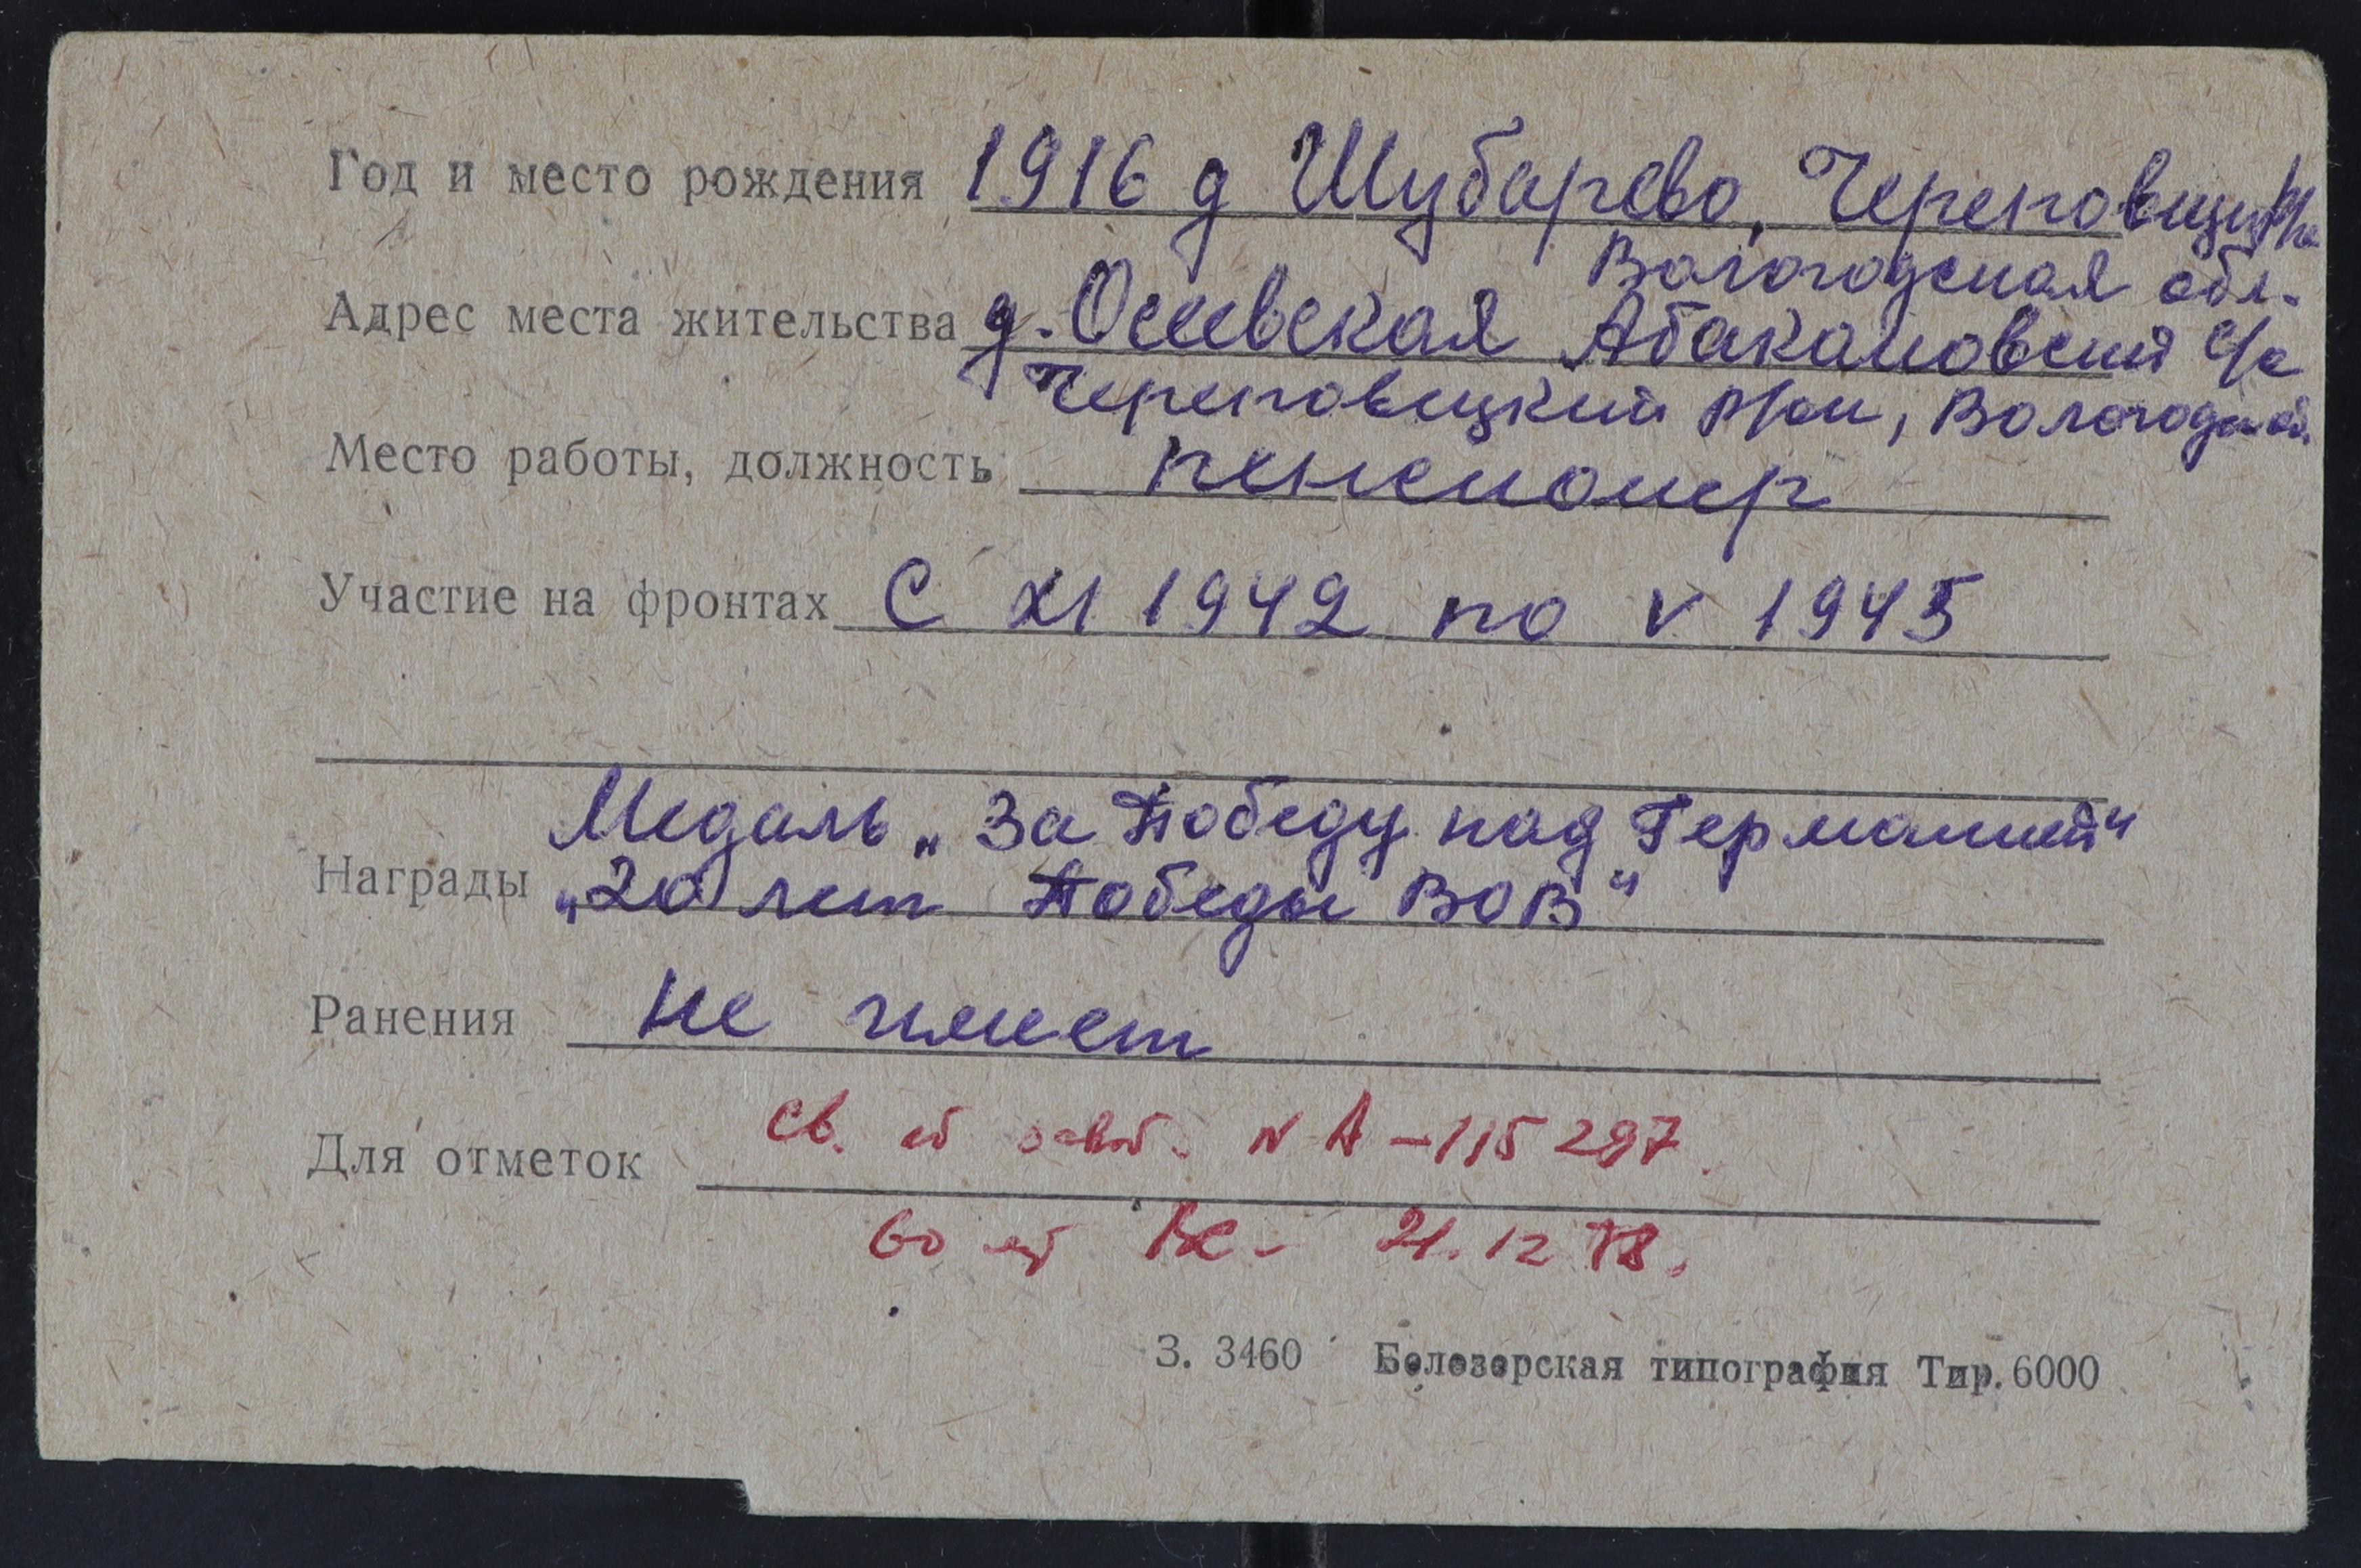 Год и место рождения 1916 д Шубарево, Череповецк р/н
Вологодская обл.
Адрес места жительства д. Осеевская Абакановский с/с
Череповецкий р/он, Вологодской
Место работы, должность пенсионер
Участие на фронтах С XI 1942 по V 1945
Медаль „За Победу над Германией"
Награды „20 лет Победы ВОВ"
Ранения Не имеет
Для отметок св. N А-115297
60 лет ВС- 21.12 78.
З. 3460 Белозерская типография Тир. 6000